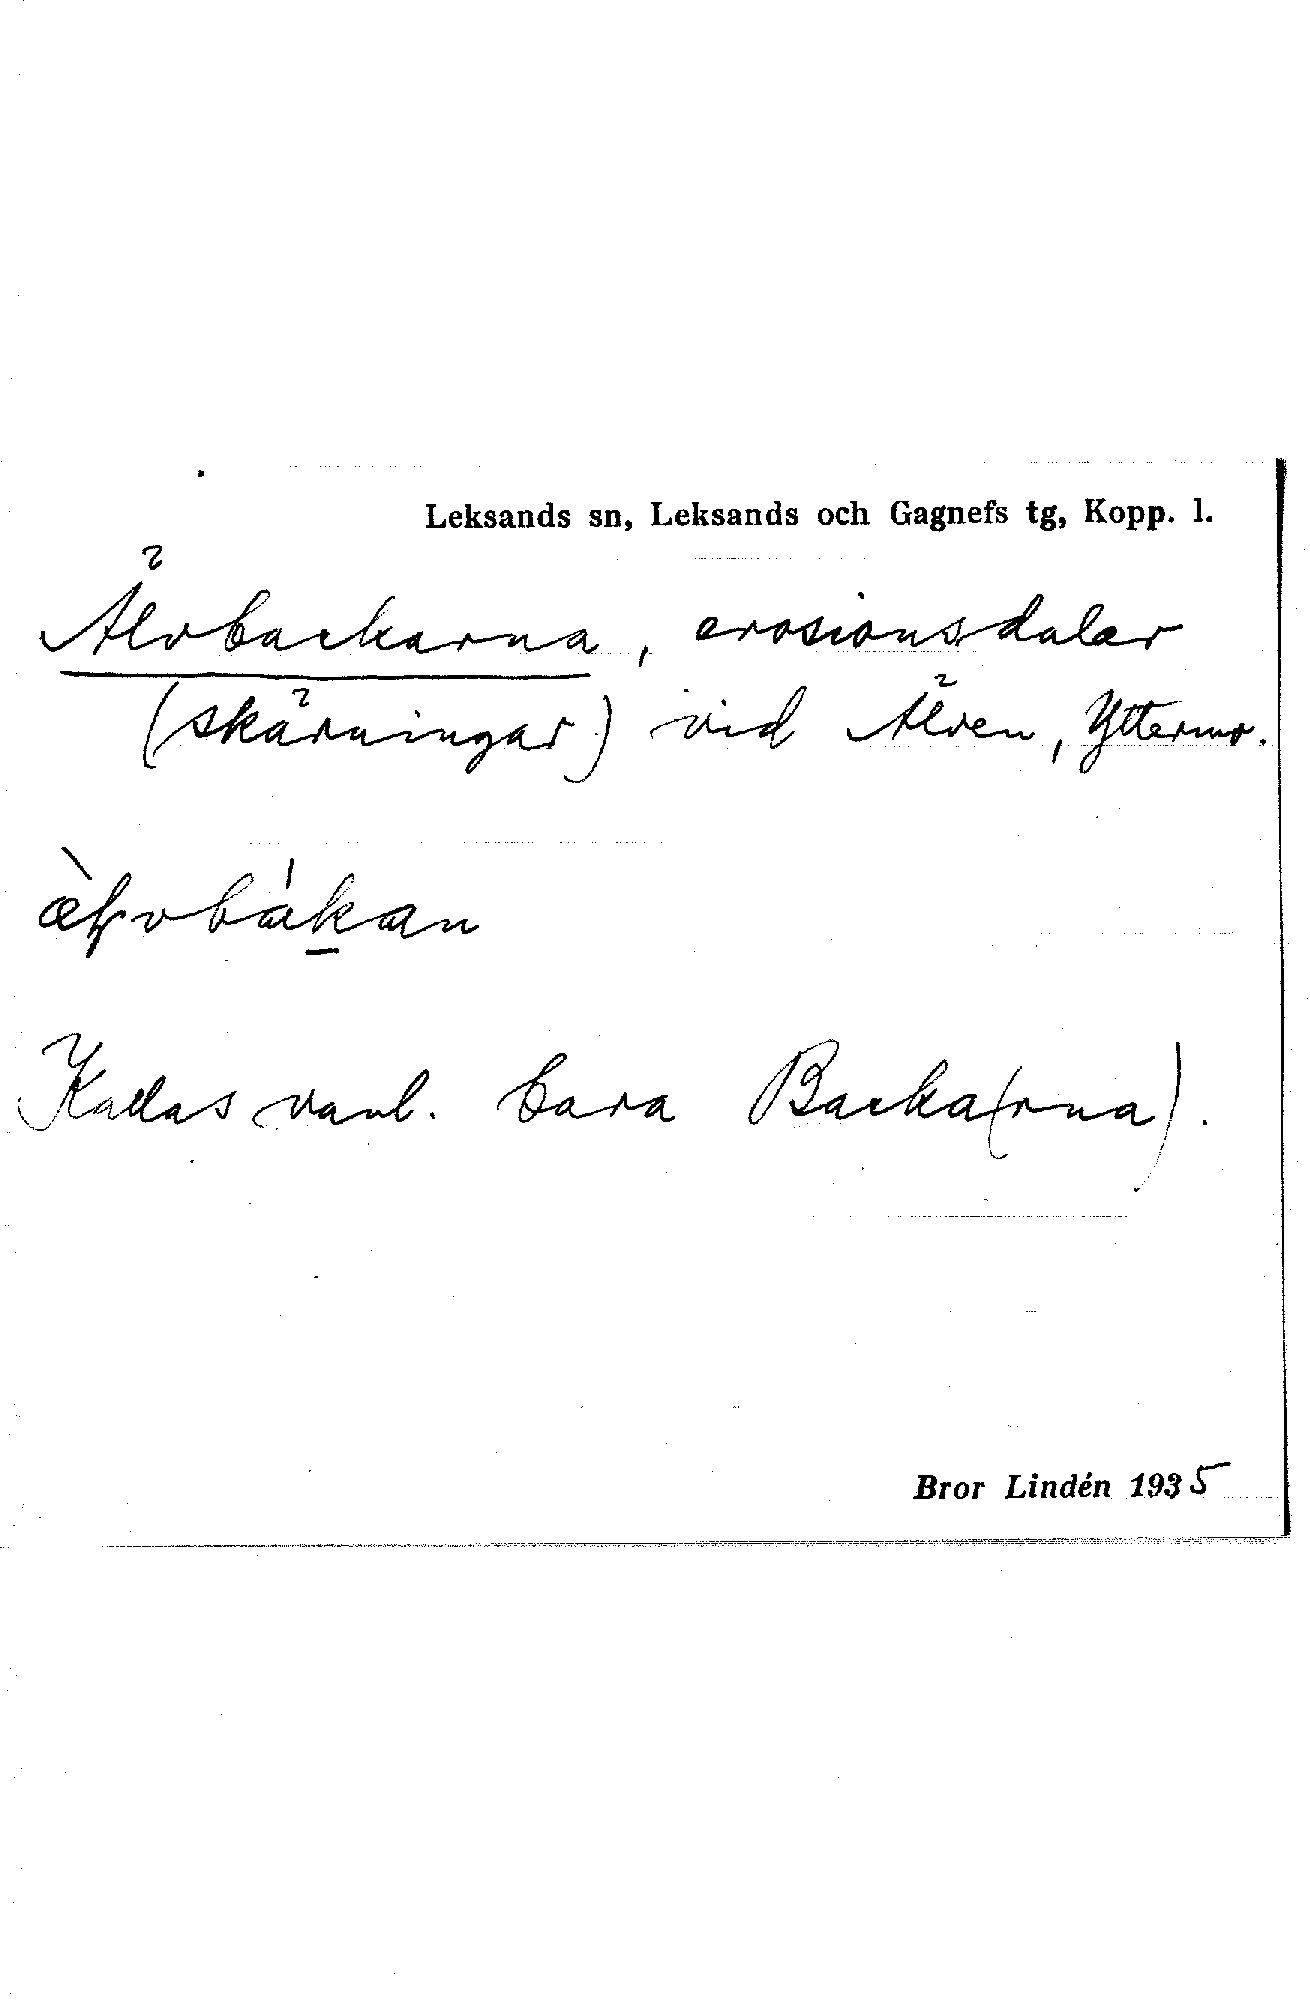 Leksands sn, Leksands och Gagnefs tg, Kopp. l.
Älvbackarna, erosionsdalar
(skärningar) vid Älven, Yttermo.
Kallas vanl. bara Backa(rna).
Bror Lindén 1935